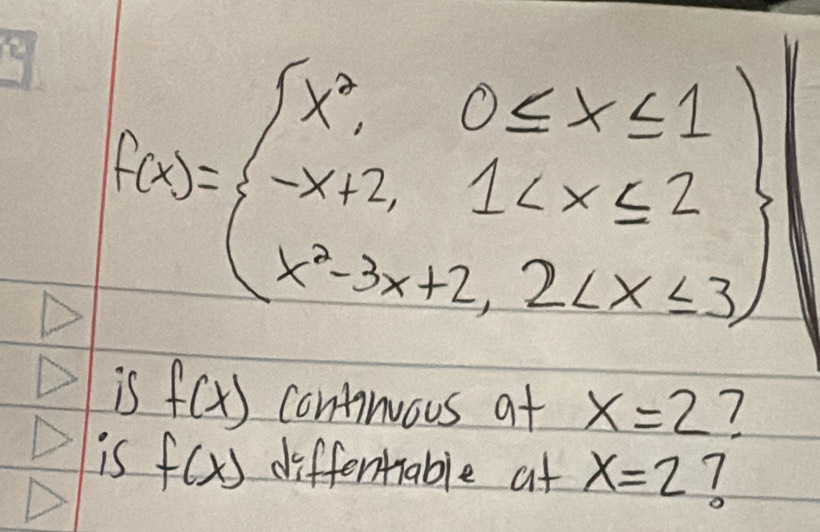 f(x) = { x², 0 ≤ x ≤ 1
-x+2, 1 < x ≤ 2
x²-3x+2, 2 < x ≤ 3 }
is f(x) continuous at x=2?
is f(x) diffentiable at x=2?